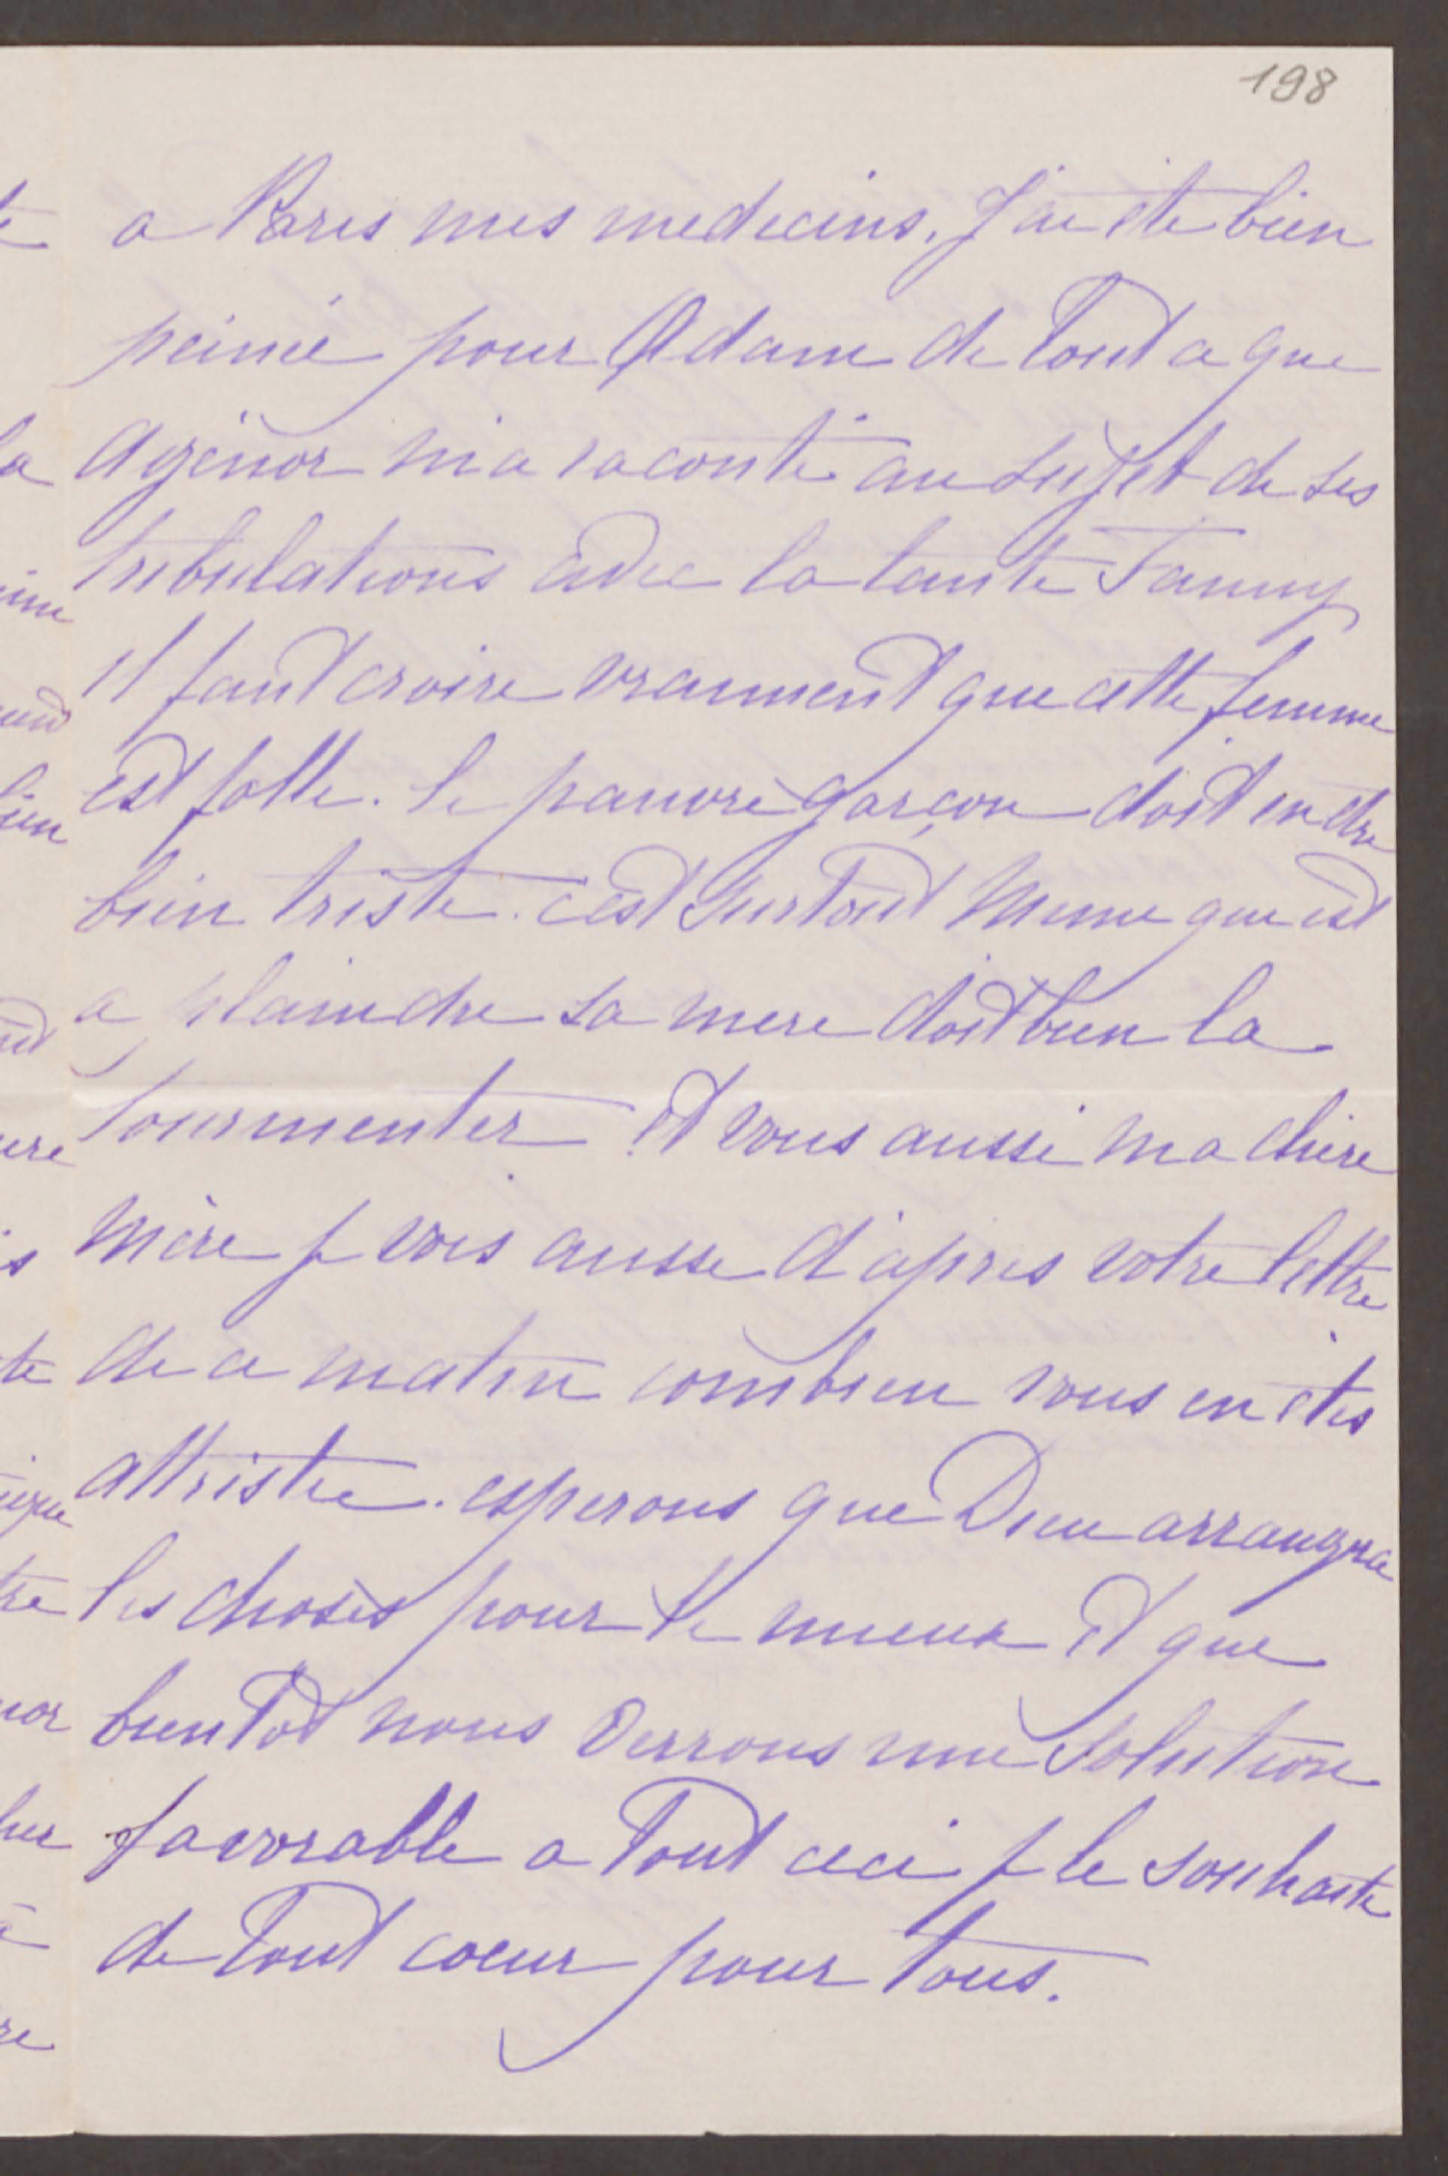 198
a Paris mes medecins. J'ai ete bien
peinée pour Adam de tout ce que
Agénor m'a raconté au sujet de ses
tribulations avec la tante Fanny
il faut croire vraiment que cette femme
est folle. le pauvre garçon doit en etre
bien triste. c'est surtout Mime qui est
a plaindre sa mere doit bien la
tourmenter et vous aussi ma chère
mère je vois aussi d'après votre lettre
de ce matin combien vous en etes
attristée. esperons que Dieu arrangra
les choses pour le mieux et que
bientot nous verrons une solution
favorable a tout ceci je le souhaite
de tout coeur pour tous.